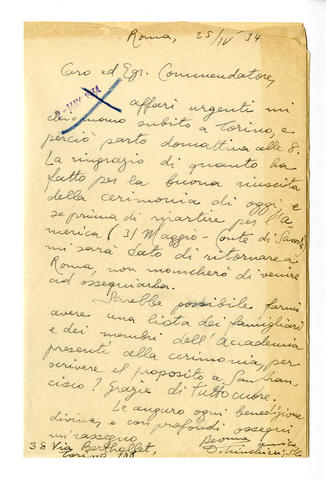 Roma, 25/IV 34
Caro ed Egr. Commendatore,
affari urgenti mi
chiamano subito a Torino, e
perciò parto domattina alle 8.
La ringrazio di quanto ha
fatto per la buona riuscita
della cerimonia di oggi e
se prima di ripartire per l'A-
merica (31 Maggio - Conte di Savoia)
mi sarà dato di ritornare a
Roma, non mancherò di venire
ad ossequiarla.
Sarebbe possibile farmi
avere una lista dei famigliari
e dei membri dell'Accademia
presenti alla cerimonia, per
scrivere il proposito a San Fran-
cisco? Grazie di tutto cuore.
Le auguro ogni benedizione
divina, e con profondi ossequi
mi rassegno
38 Via Berthollet,
Torino